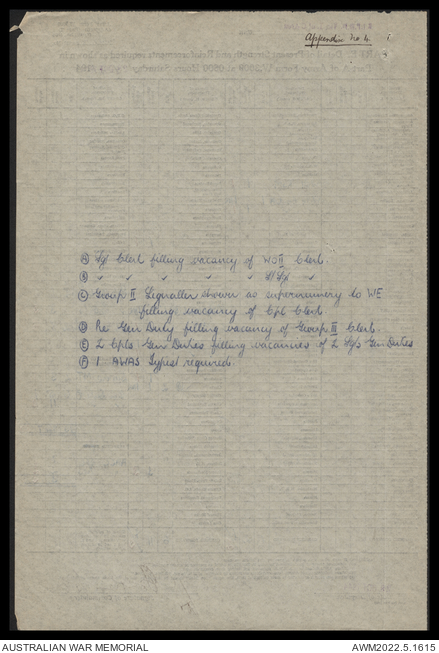 Appendix No 4.
(A) Sgt Clerk filling vacancy of WOII Clerk.
(B) " " " " " S/Sgt "
(C) Group II Signaller shown as supernumery to WE
filling vacancy of Cpl Clerk.
(D) Pte Gen Duty filling vacancy of Group III Clerk.
(E) 2 Cpls Gen Duties filling vacancies of 2 Sgts Gen Duties
(F) 1 AWAS Typist required.
AUSTRALIAN WAR MEMORIAL
AWM2022.5.1615